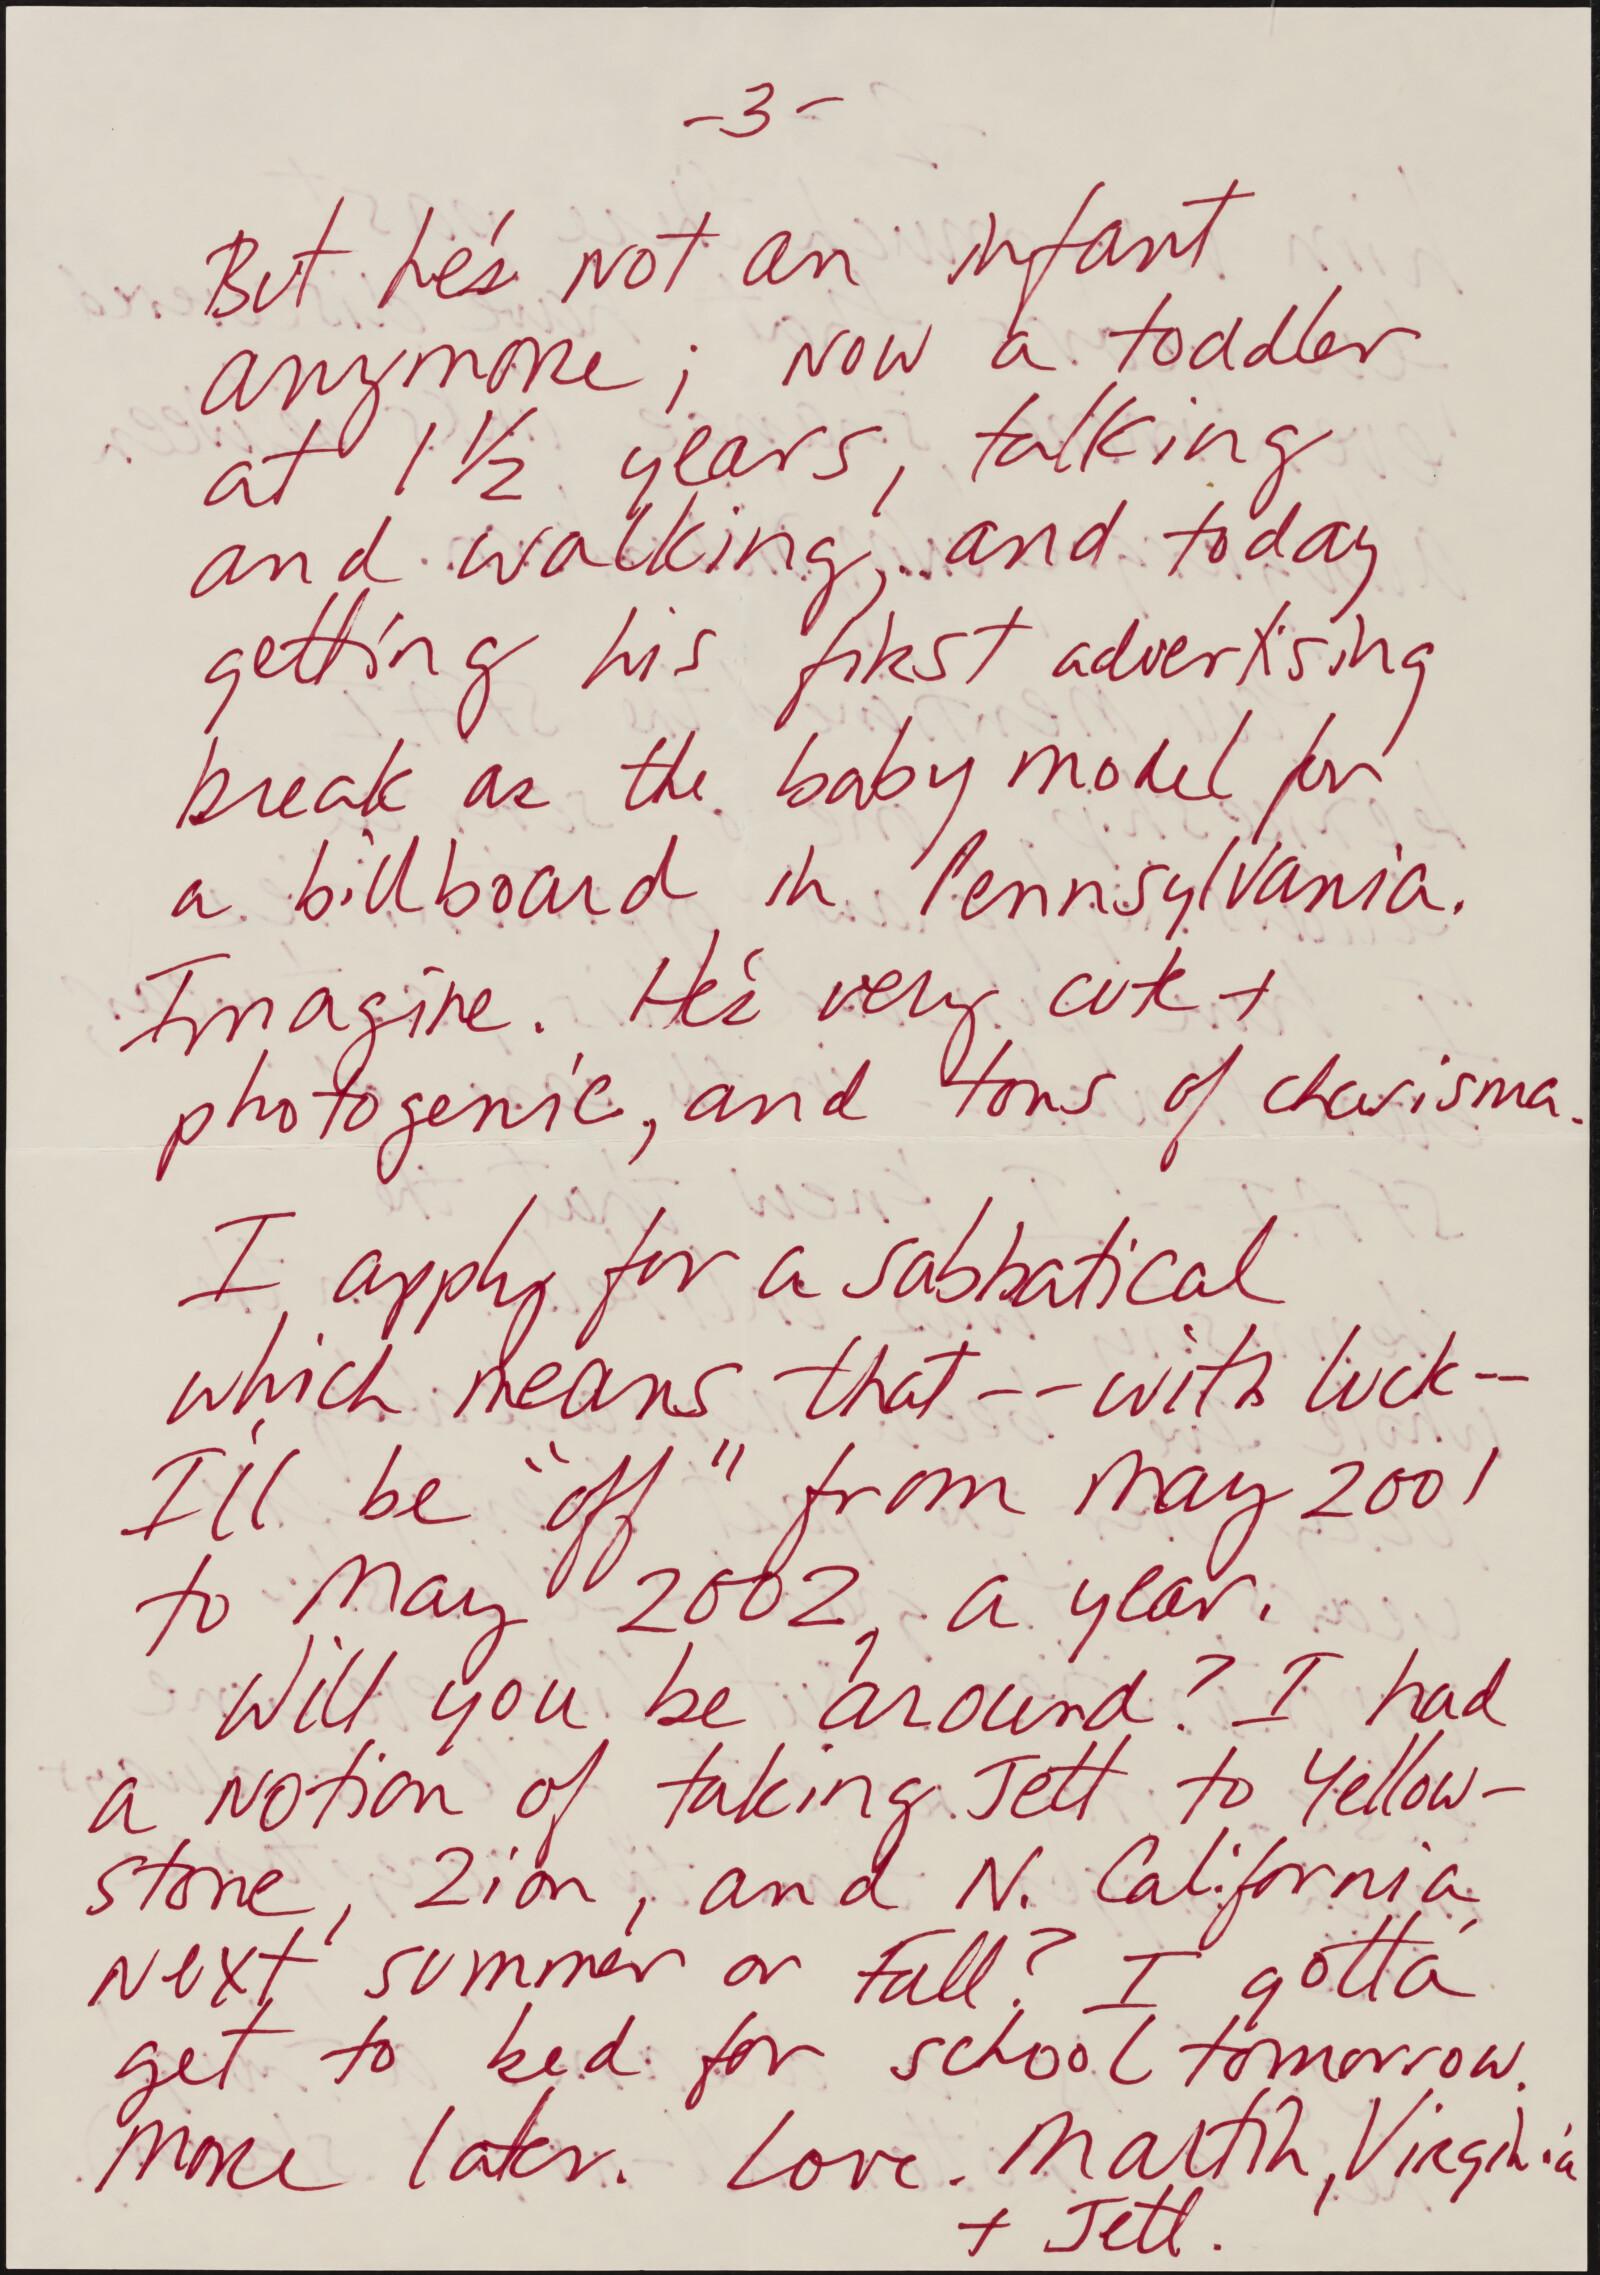 -3-
But he's not an infant
anymore; now a toddler
at 1 1/2 years, talking
and walking, and today
getting his first advertising
break as the baby model for
a billboard in Pennsylvania.
Imagine. He's very cute +
photogenic, and tons of charisma.
I apply for a sabbatical
which means that -- with luck --
I'll be "off" from May 2001
to May 2002, a year.
Will you be around? I had
a notion of taking Jett to Yellow-
stone, Zion, and N. California
next summer or Fall? I gotta
get to bed for school tomorrow.
More later. Love. Martin, Virginia
+ Jett.